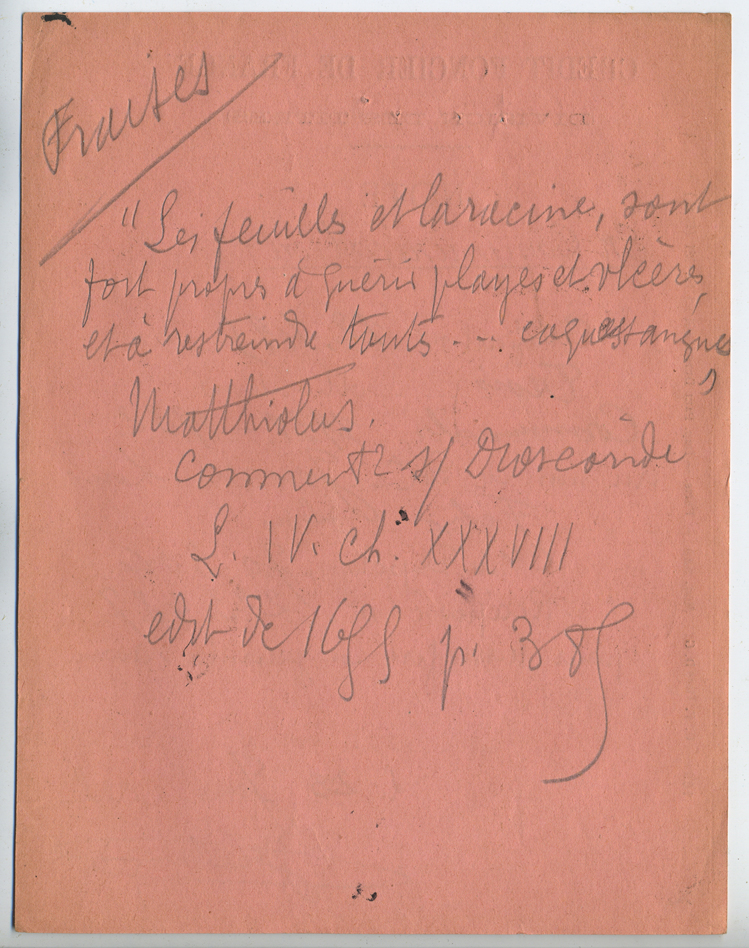 Fraises
"Les feuilles et la racine, sont
fort propres à guérir playes et vlcères,
et à restreindre touts ... caquessangues
Matthiolus.
Comment2 s/ Dioscoride
L. IV. ch. XXXVIII
edit de 1655 p. 385